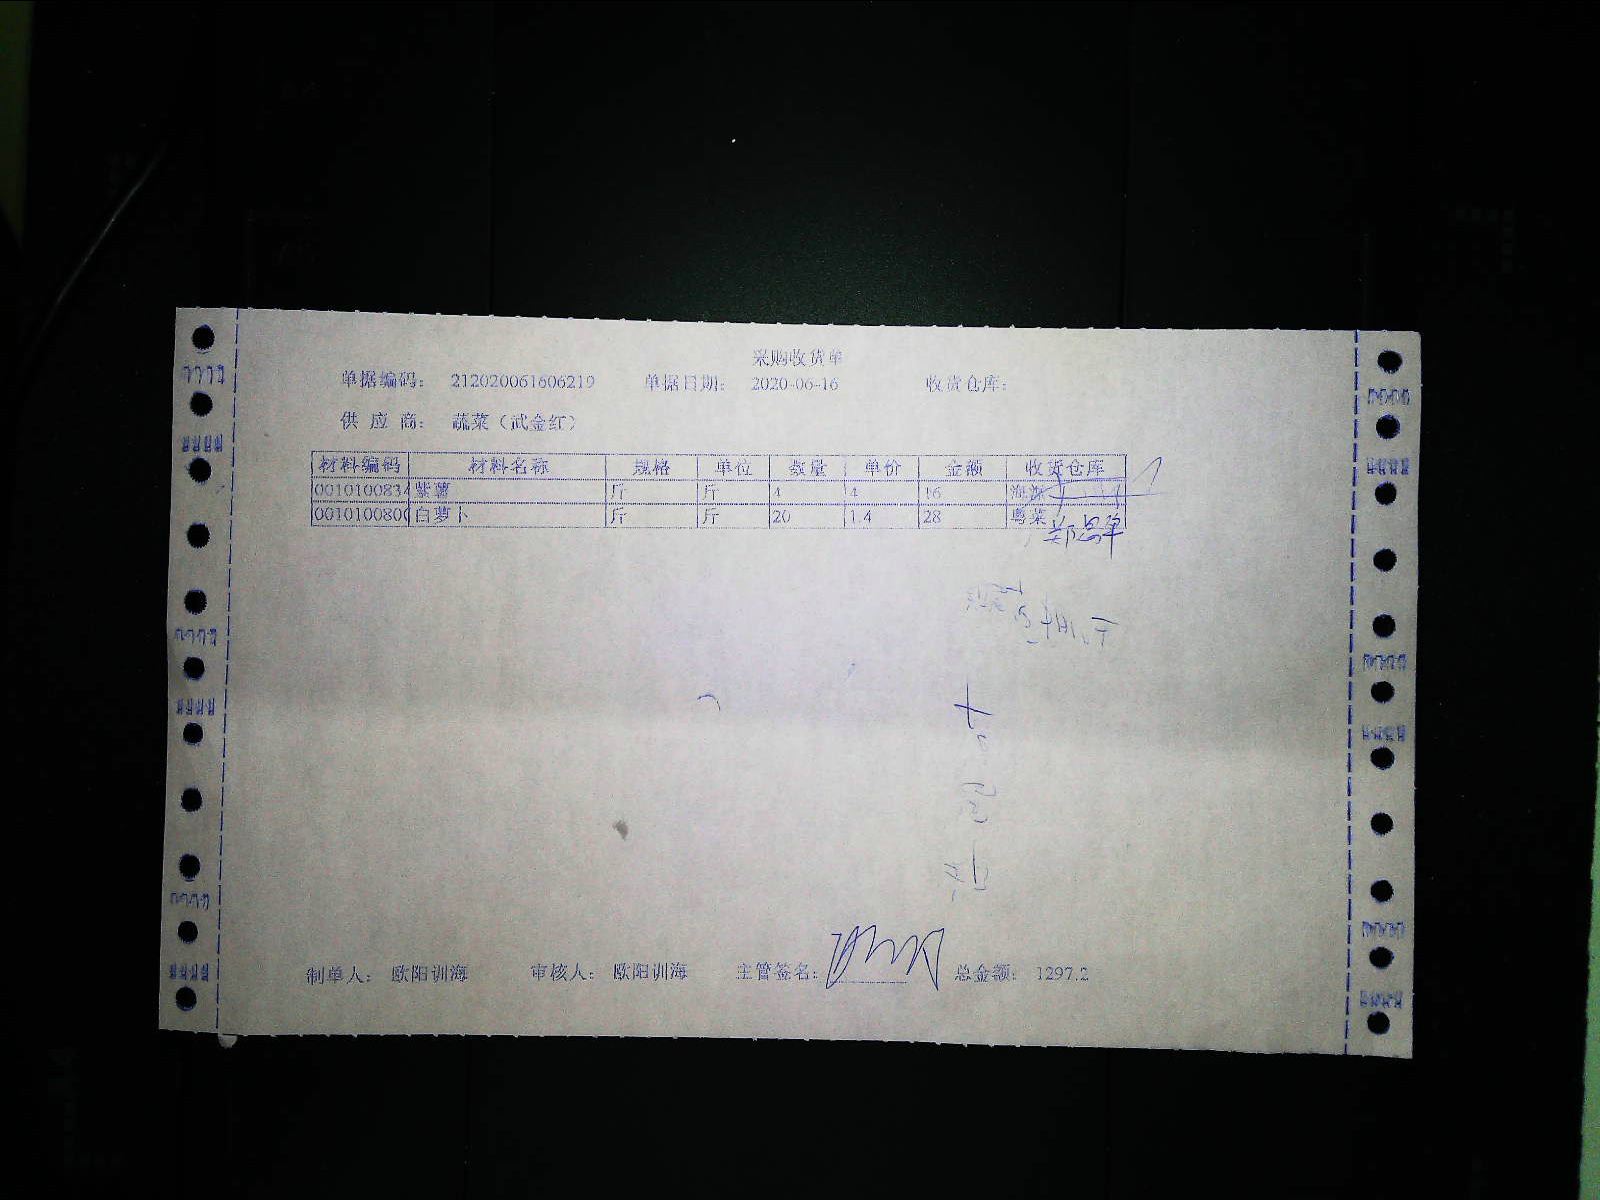 采购收货单
单据编码： 212020061606219 单据日期： 2020-06-16 收货仓库：
供 应 商： 蔬菜（武金红）
材料编码 材料名称 规格 单位 数量 单价 金额 收货仓库
0010100834 紫薯 斤 斤 4 4 16 海
001010080 白萝卜 斤 斤 20 1.4 28 粤菜
制单人： 欧阳训海 审核人： 欧阳训海 主管签名： 总金额： 1297.2